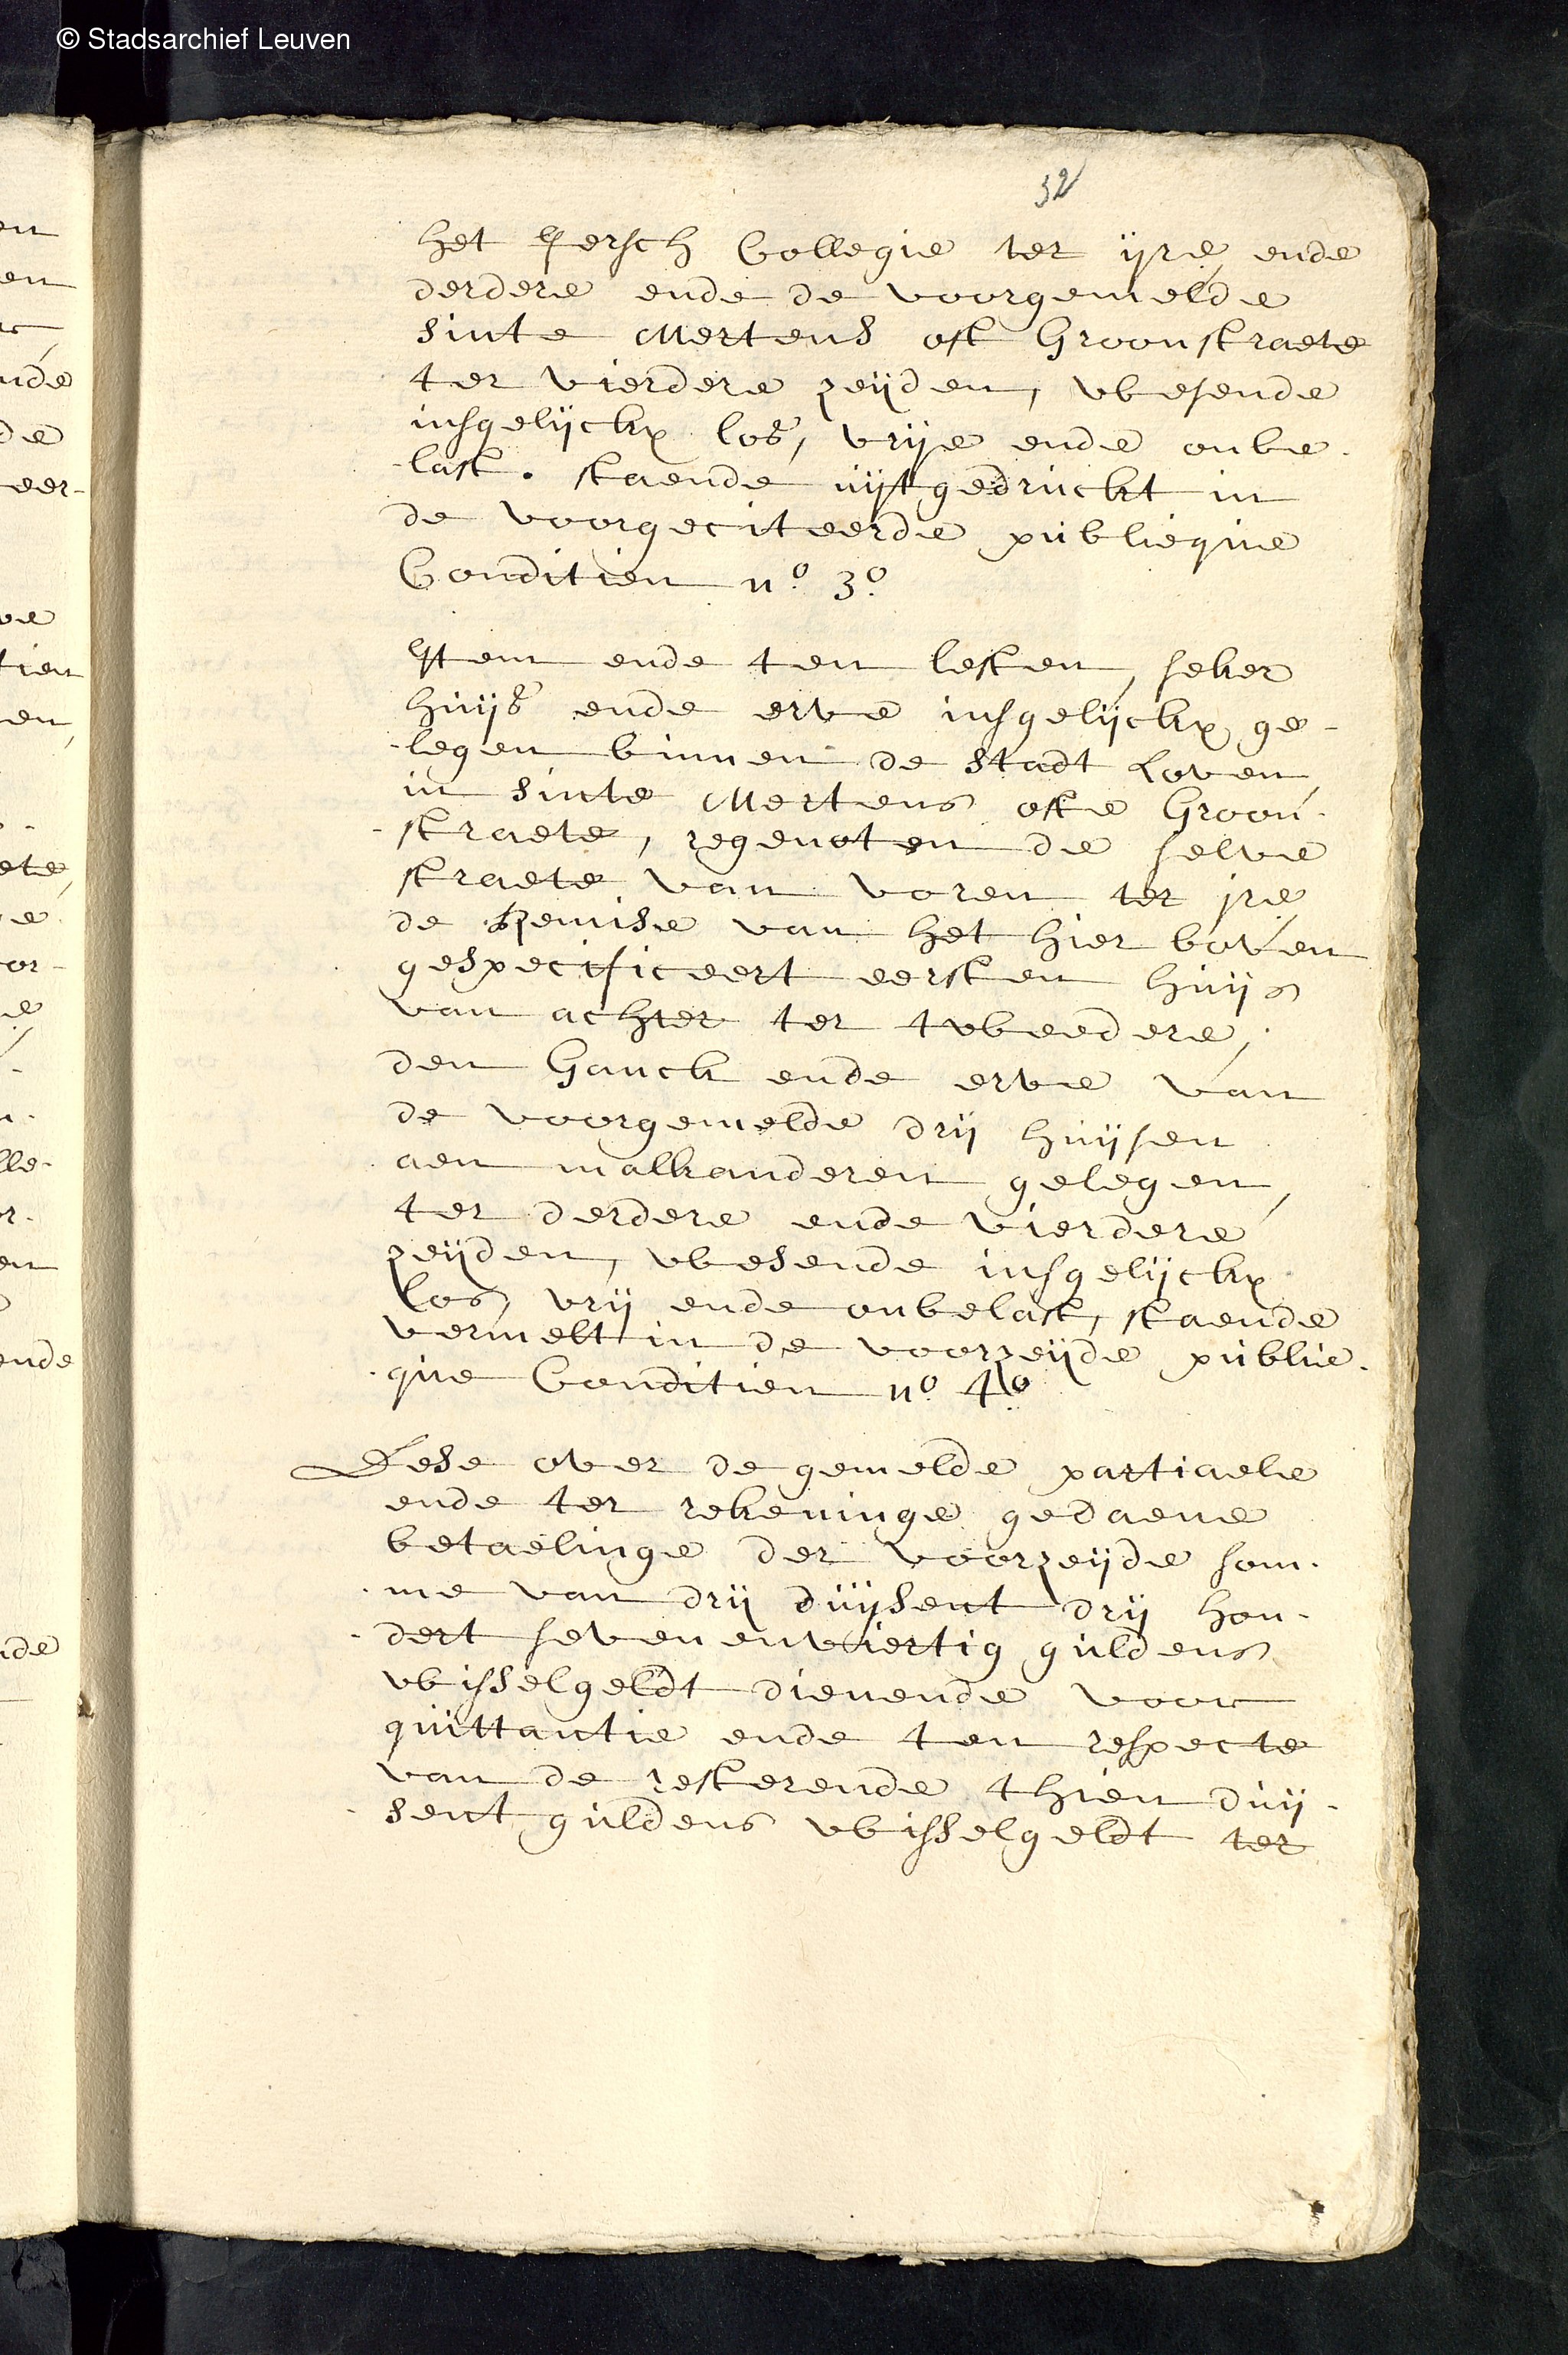 © Stadsarchief Leuven
32
het Iersch Collegie ter ijre, ende
derdere ende de voorgemelde
sinte Mertens oft Groonstraete
ter vierdere zeijden, wesende
insgelijckx los, vrije ende onbe-
-last. staende uijtgedruckt in
de voorgeciteerde publieque
Conditien n.º 3.º
Item ende ten lesten, seker
huijs ende erve insgelijckx, ge-
-legen binnen de stadt Loven,
in sinte Mertens ofte Groon-
-straete, regenoten de selve
straete van voren ter jre,
de Remise van het hier boven
gespecificeert eersten huijs
van achter ter tweedere,
den Ganck ende erve van
de voorgemelde drij huijsen
aen malkanderen gelegen,
ter derdere ende vierdere
zeijden, wesende insgelijckx
los, vrij ende onbelast, staende
vermelt in de voorzeijde publie-
-que Conditien n.º 4.º
Dese over de gemelde partiaele
ende ter rekeninge gedaene
betaelinge der voorzeijde som-
-me van drij duijsent drij hon-
-dert sevenenviertig guldens
wisselgeldt dienende voor
quittantie ende ten respecte
van de resterende thien duij-
-sent guldens wisselgeldt ter